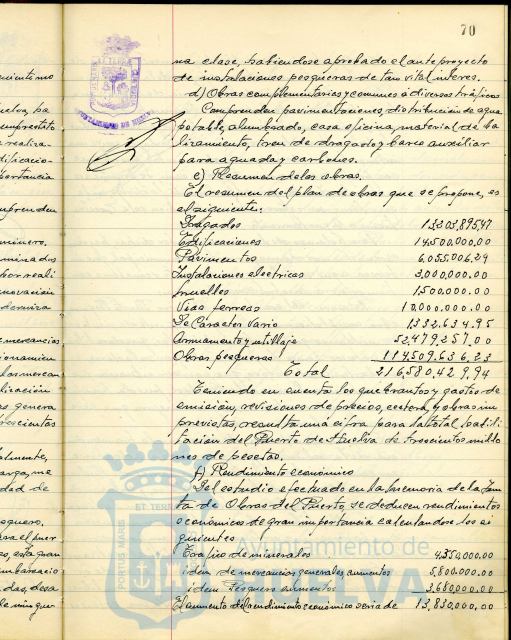 70
na clase, habiendose aprobado el anteproyecto
de instalaciones pesqueras de tan vital interes.
d) Obras complementarias y comunes a diversos tráficos
Comprenden pavimentaciones, distribución de agua
potable, alumbrado, casa oficina, material de ba
lizamiento, tren de dragado y barco auxiliar
para aguada y carbones.
e) Resumen de las obras.
El resumen del plan de obras que se propone, es
el siguiente:
Dragados 13.203.895,47
Edificaciones 14.500.000.00
Pavimentos 6.055.006.29
Instalaciones electricas 3.000.000.00
Muelles 1.500.000.00
Vias ferreas 10.000.000.00
De Caracter vario 1.332.634.95
Armamento y utillaje 52.479.257.00
Obras pesqueras 114.509.636.23
Total 216.580.429.94
Teniendo en cuenta los quebrantos y gastos de
emisión, revisiones de precios, cetera, y obras im
previstas, resulta una cifra para la total habili
tación del Puerto de Huelva de trescientos millo
nes de pesetas.
f) Rendimiento económico
Del estudio efectuado en la memoria de la Jun
ta de Obras del Puerto, se deducen rendimientos
económicos de gran importancia calculandose los si
guientes
Trafico de minerales 4.350.000,00
idem de mercancias generales aumentos 5.800.000,00
idem Pesquero aumentos 3.680.000,00
El aumento del rendimiento económico seria de 13,830,000,00
Ayuntamiento de
HUELVA
PORTUS MARIS
ET TERRAE